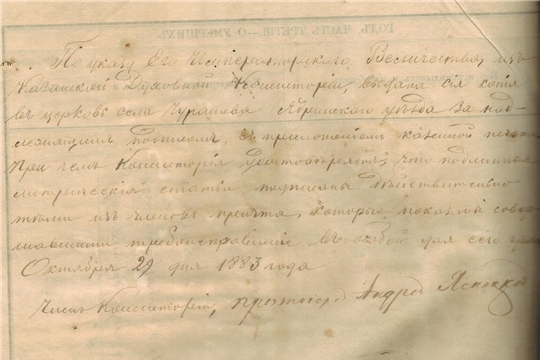 По указу Его Императорского Величества, изъ
Казанской Духовной Консисторіи, выдана сія копія
въ церковь села Чурашева Ядринского уѣзда за над-
лежащимъ подписомъ, съ приложеніемъ казенной печати
При чемъ Консисторія удостовѣряетъ, что подлинныя
метрическія статьи подписаны дѣйствительно
тѣми изъ членовъ причта, которые показаны совер-
шавшими требоисправленіе въ особой для сего графѣ
Октября 29 дня 1883 года
Членъ Консисторіи, протоіерей Андрей